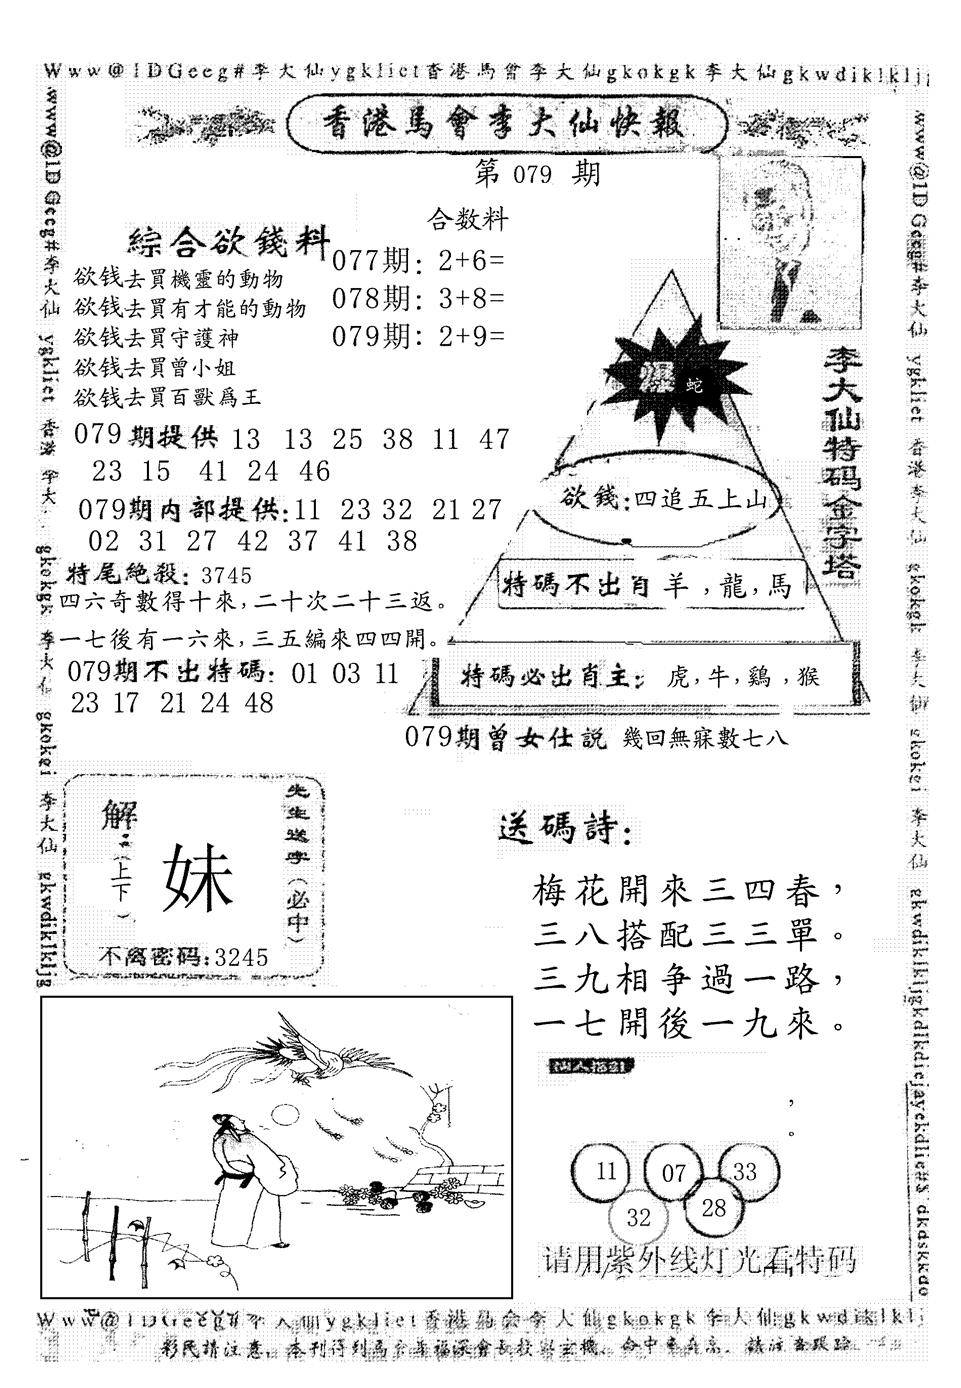 Www@1DGeeg#李大仙ygkliet香港馬會李大仙gkokgk李大仙gkwdiklklj
香港馬會李大仙快報
第 079 期
合数料
077期: 2+6=
078期: 3+8=
079期: 2+9=
綜合欲錢料
欲钱去買機靈的動物
欲钱去買有才能的動物
欲钱去買守護神
欲钱去買曾小姐
欲钱去買百獸爲王
079期提供 13 13 25 38 11 47
23 15 41 24 46
079期内部提供:11 23 32 21 27
02 31 27 42 37 41 38
特尾絶殺: 3745
四六奇數得十來,二十次二十三返。
一七後有一六來,三五編來四四開。
079期不出特碼: 01 03 11
23 17 21 24 48
李大仙特码金字塔
爆 蛇
欲錢:四追五上山
特碼不出肖 羊,龍,馬
特碼必出肖主: 虎,牛,鷄,猴
079期曾女仕説 幾回無寐數七八
先生送字(必中)
解:
(上下)
妹
不离密码:3245
送碼詩:
梅花開來三四春,
三八搭配三三單。
三九相争過一路,
一七開後一九來。
,
。
11 07 33
32 28
请用紫外线灯光看特码
www@1DGeeg#李大仙 ygkliet 香港 李大 gkokgk 李大仙 gkokei 李大仙 gkwdiklkljg
www@1DGeeg#李大仙 ygkliet 香港李大仙 gkokgk 李大仙 gkokei 李大仙 gkwdiklkljgkdlkdiejayekdlie#$ dkdskkdo
Www@1DGeeg#李大仙ygkliet香港馬会李大仙gkokgk李大仙gkwdiklklj
彩民請注意,本刊得到馬會